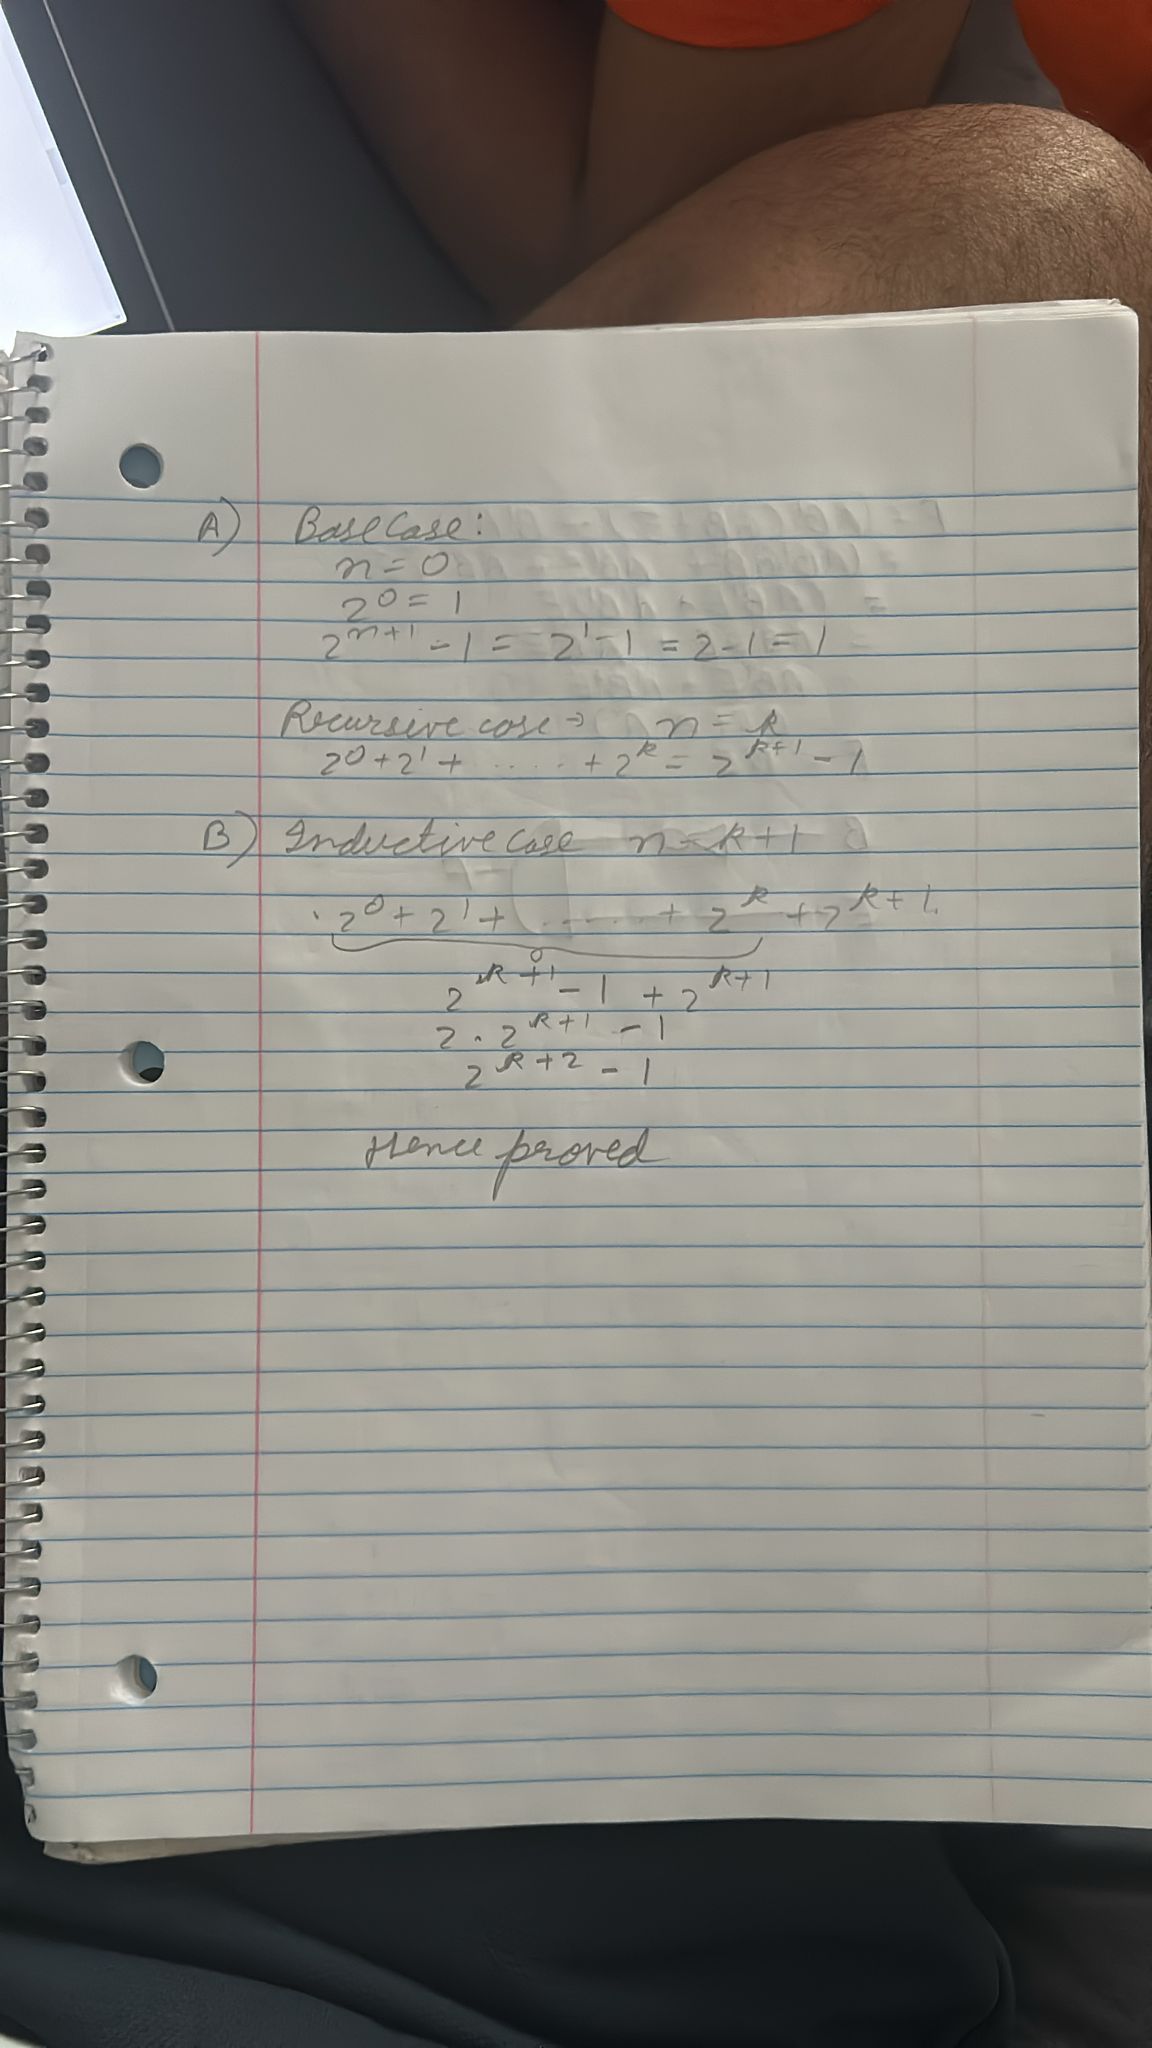 A) Base Case:
n = 0
2⁰ = 1
2ⁿ⁺¹ - 1 = 2¹ - 1 = 2 - 1 = 1
Recursive case → n = k
2⁰ + 2¹ + ..... + 2ᵏ = 2ᵏ⁺¹ - 1
B) Inductive Case n = k + 1
. 2⁰ + 2¹ + ...... + 2ᵏ + 2ᵏ⁺¹.
2ᵏ⁺¹ - 1 + 2ᵏ⁺¹
2 . 2ᵏ⁺¹ - 1
2ᵏ⁺² - 1
Hence proved